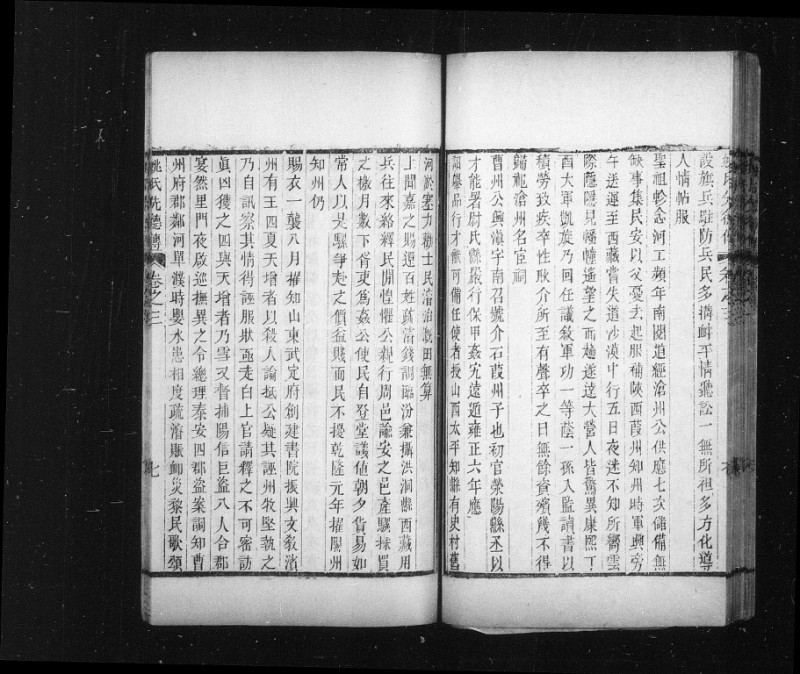 設旗兵駐防兵民多搆衅平情聽訟一無所袒多方化導
人情帖服
聖祖軫念河工頻年南閱道經滄州公供應七次儲備無
缺事集民安以父憂去起服補陝西葭州知州時軍興旁
午送運至西藏嘗失道沙漠中行五日夜迷不知所嚮雲
際隱隱見幡幢遙望之而趨遂達大營人皆驚異康熙丁
酉大軍凱旋乃回任議敘軍功一等蔭一孫入監讀書以
積勞致疾卒性耿介所至有聲卒之日無餘資殯幾不得
歸祀滄州名宦祠
曹州公興滇字南召號介石葭州子也初官滎陽縣丞以
才能署尉氏縣嚴行保甲姦宄遠遁雍正六年應
詔舉品行才猷可備任使者授山西太平知縣有史村舊
河於塞力糾士民濬治溉田無算
上聞嘉之賜還百姓萬濬錢調臨汾兼攝洪洞縣西藏用
兵往來絡繹民閒惶懼公親行周邑諭安之邑產騾採買
之檄月數下胥吏為姦公使民自登堂議値朝夕貨易如
常人以是騾爭赴之價益賤而民不擾乾隆元年擢隰州
知州仍
賜衣一襲八月擢知山東武定府創建書院振興文敎濱
州有王四夏天增者以殺人論抵公疑其誣州牧堅執之
乃自訊察其情得誣服狀亟走白上官請釋之不可密訪
眞凶獲之四與天增者乃雪又督捕陽信巨盜八人合郡
宴然里門夜啟巡撫異之令總理泰安四郡盜案調知曹
州府郡鄰河單濮時嬰水患相度疏濬賑卹災黎民歌頌
姚氏先德傳 卷之三 七